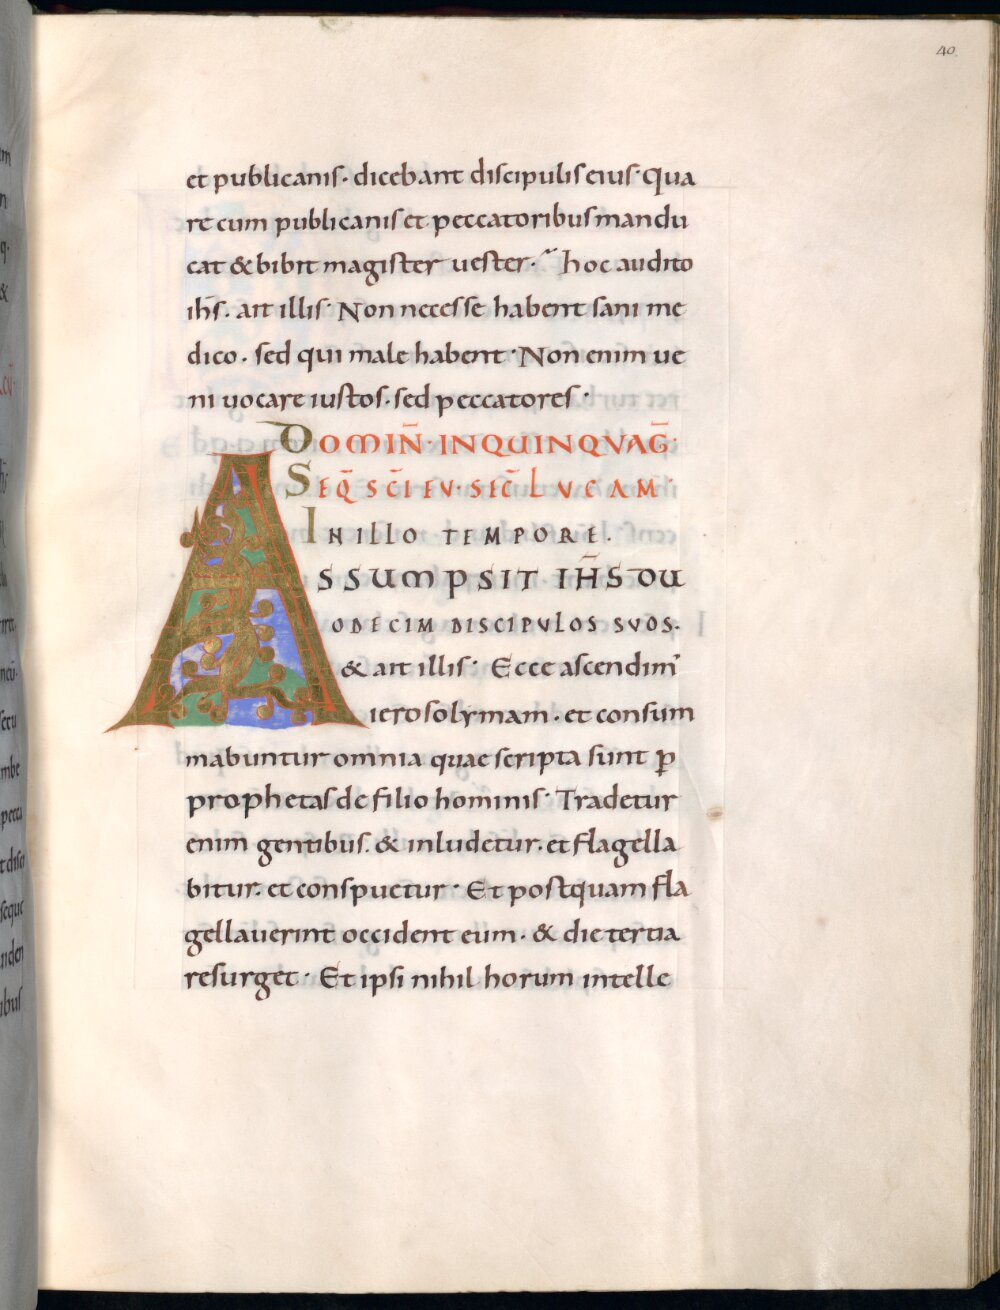 40
et publicanis· dicebant discipulis eius· Qua
re cum publicanis et peccatoribus mandu
cat & bibit magister uester· hoc audito
ihs̄· ait illis· Non necesse habent sani me
dico· sed qui male habent· Non enim ue
ni uocare iustos· sed peccatores·
DOMIN̄· IN QUINQVAG̅·
SEQ̄ SC̄I EV· SEC̄ LVCAM·
IN ILLO TEMPORE·
ASSUMPSIT IH̄S DU
ODECIM DISCIPVLOS SVOS·
& ait illis· Ecce ascendim᾽
ierosolymam· et consum
mabuntur omnia quae scripta sunt ꝑ
prophetas de filio hominis· Tradetur
enim gentibus· & inludetur· et flagella
bitur· et conspuetur· Et postquam fla
gellauerint occident eum· & die tertia
resurget· Et ipsi nihil horum intelle